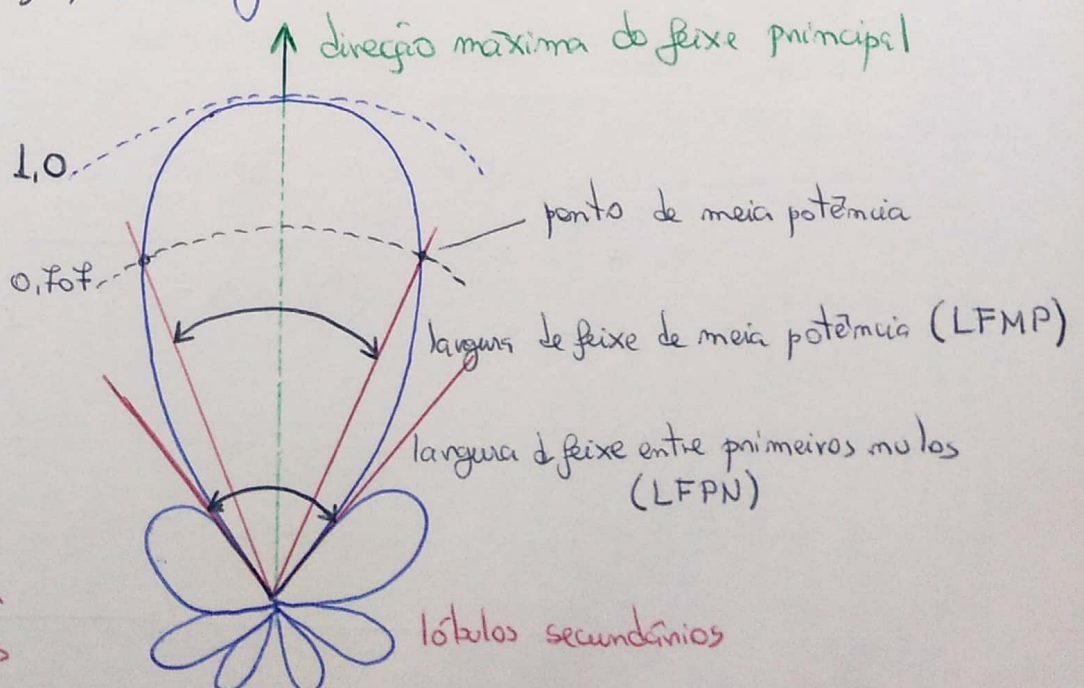 direção máxima do feixe principal
1,0
ponto de meia potência
0,707
largura de feixe de meia potência (LFMP)
largura d feixe entre primeiros nulos
(LFPN)
lóbulos secundários